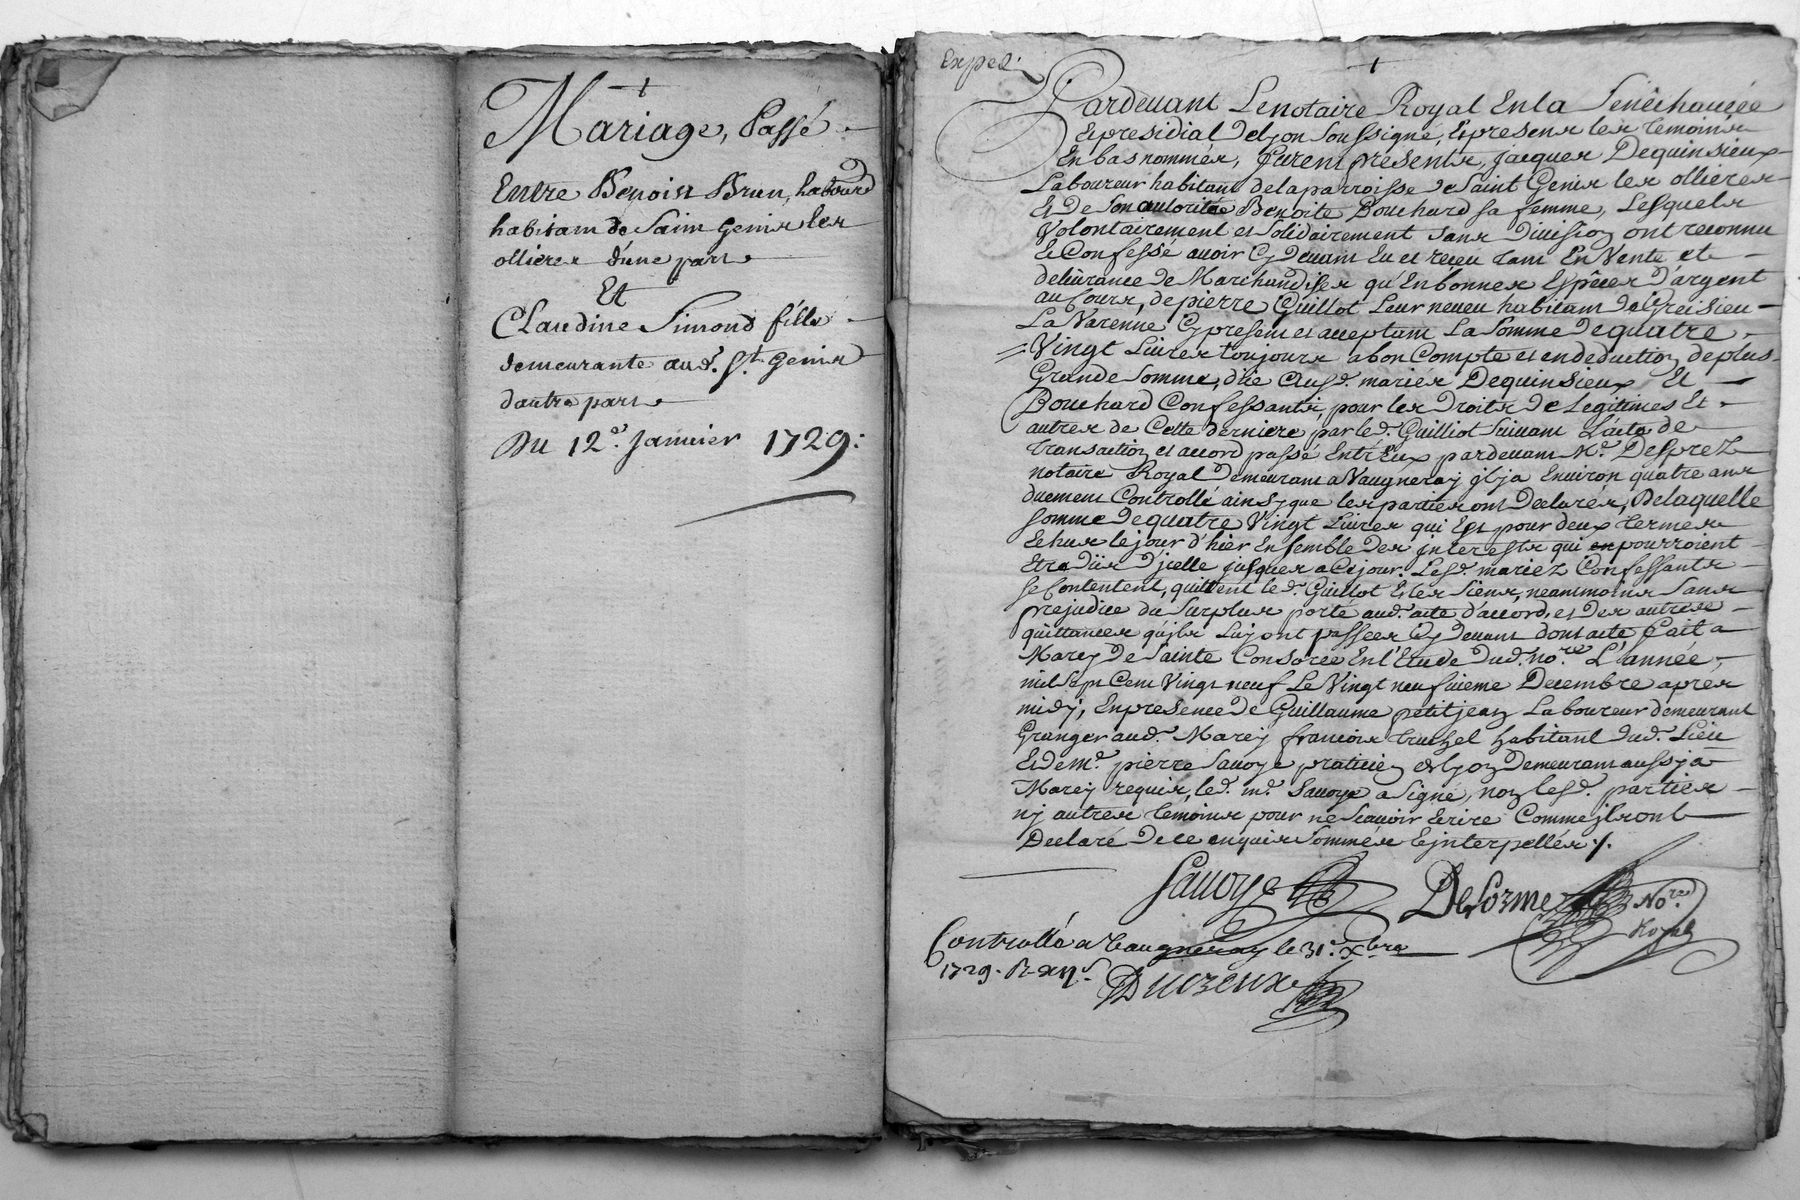 +
Mariage, Passé
Entre Benoist Brun, Laboure
habitant de Saint Genis les
ollieres d'une part
Et
Claudine Simond fille
demeurante aud.t S.t Genis
d'autre part
Du 12.e Janvier 1729.
Exped.
+
Pardevant Le notaire Royal En la Senêchaucée
Et presidial de Lyon Soussigné, Et presens les temoins
En bas nommés, furent presents, jacques Dequinsieux
Laboureur habitant de la parroisse de Saint Genis les ollieres
Et De Son autorité Benoite Bouchard sa femme, Lesquels
Volontairement et Solidairement sans Division ont reconnu
Et Confessé avoir Cy devant Eu et receu tant En Vente et
delivrance de Marchandises qu'En bonnes Espêces D'argent
au Cours, de pierre Guillot Leur neveu habitant de Greisieu
La Varenne Cy present et acceptant La Somme De quatre
Vingt Livres toujours a bon Compte et en deduction de plus
Grande Somme, düe Ausd. mariés Dequinsieux Et
Bouchard Confessants, pour les Droits De Legitimes Et
autres de Cette derniere par led. Guilliot Suivant L'acte de
transaction et accord passé Entr'Eux pardevant M.e Desprez
notaire Royal Demeurant a Vaugneray il y a Environ quatre ans
duement Controllé ainsy que les parties ont Declarés, De laquelle
Somme De quatre Vingt Livres qui Est pour deux termes
Echus le jour d'hier Ensemble des jnterests qui en pourroient
Etre Düs D'jcelle jusques a Ce jour. Lesd. mariez Confessants
se Contentent, quittent led. Guillot Et les Siens, neantmoins Sans
prejudice du Surplus porté aud. acte d'accord, et des autres
quittances qu'jls Luy ont passées Cy Devant dont acte fait a
Marcy De Sainte Consorce En l'Etude Dud. no.re L'année
mil Sept Cent Vingt neuf Le Vingt neufvieme Decembre apres
midy, En presence De Guillaume petitjean Laboureur demeurant
Granger aud. Marcy françois truchel habitant dud. Lieu
Et de m.e pierre Savoye praticien de Lyon Demeurant aussj a
Marcy requis, led. m.e Savoye a Signé, non lesd. parties
ny autres temoins pour ne Scavoir Ecrire Comme jls ont
Declaré De ce enquis Sommés Et jnterpellés ./.
Savoye
Delorme No.re
Royal
Controllé a Vaugneray le 31.e Xbre
1729. R.
Ducreux